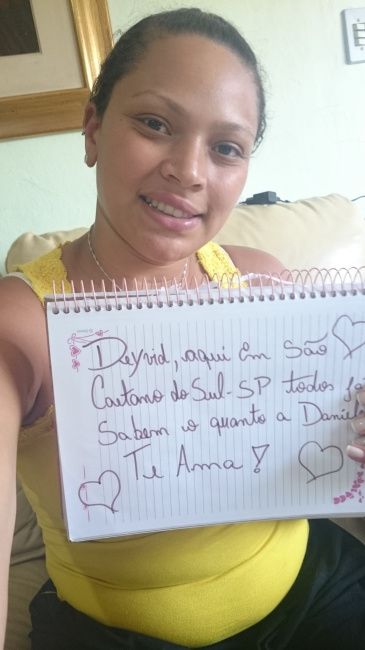 Deyvid, aqui Em São
Caetano do Sul-SP todos já
Sabem o quanto a Daniela
Te Ama!